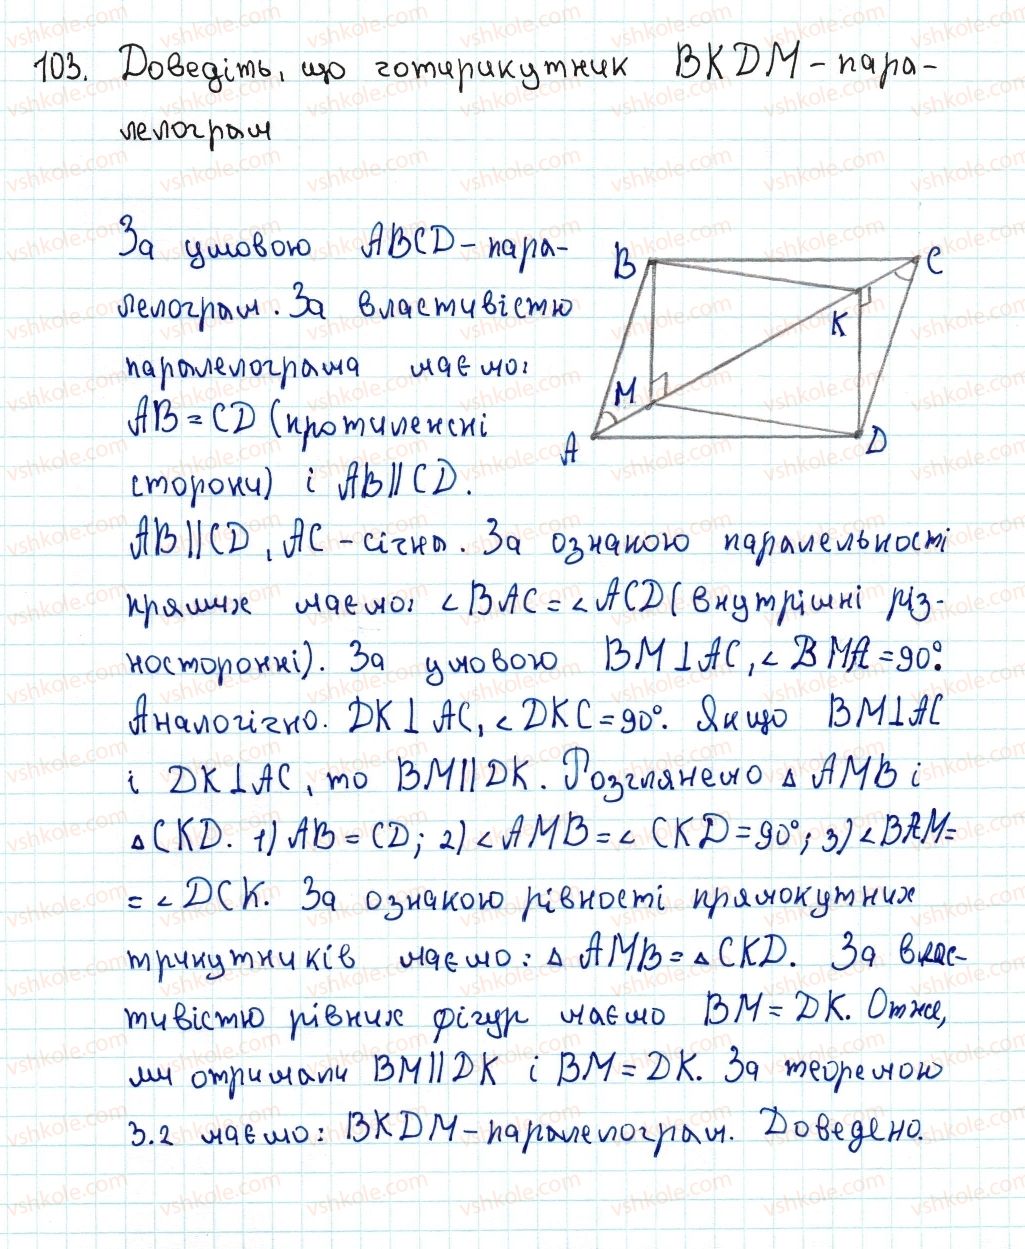 103. Доведіть, що чотирикутник BKDM - пара-
лелограм
За умовою ABCD - пара-
лелограм. За властивістю
паралелограма маємо:
AB = CD (протилежні
сторони) і AB || CD.
B
C
K
M
A
D
AB || CD, AC - січна. За ознакою паралельності
прямих маємо: ∠BAC = ∠ACD (внутрішні різ-
носторонні). За умовою BM ⊥ AC, ∠BMA = 90°.
Аналогічно. DK ⊥ AC, ∠DKC = 90°. Якщо BM ⊥ AC
і DK ⊥ AC, то BM || DK. Розглянемо △ AMB і
△ CKD. 1) AB = CD; 2) ∠AMB = ∠CKD = 90°; 3) ∠BAM =
= ∠DCK. За ознакою рівності прямокутних
трикутників маємо: △ AMB = △ CKD. За влас-
тивістю рівних фігур маємо BM = DK. Отже,
ми отримали BM || DK і BM = DK. За теоремою
3.2 маємо: BKDM - паралелограм. Доведено.
vshkole.com